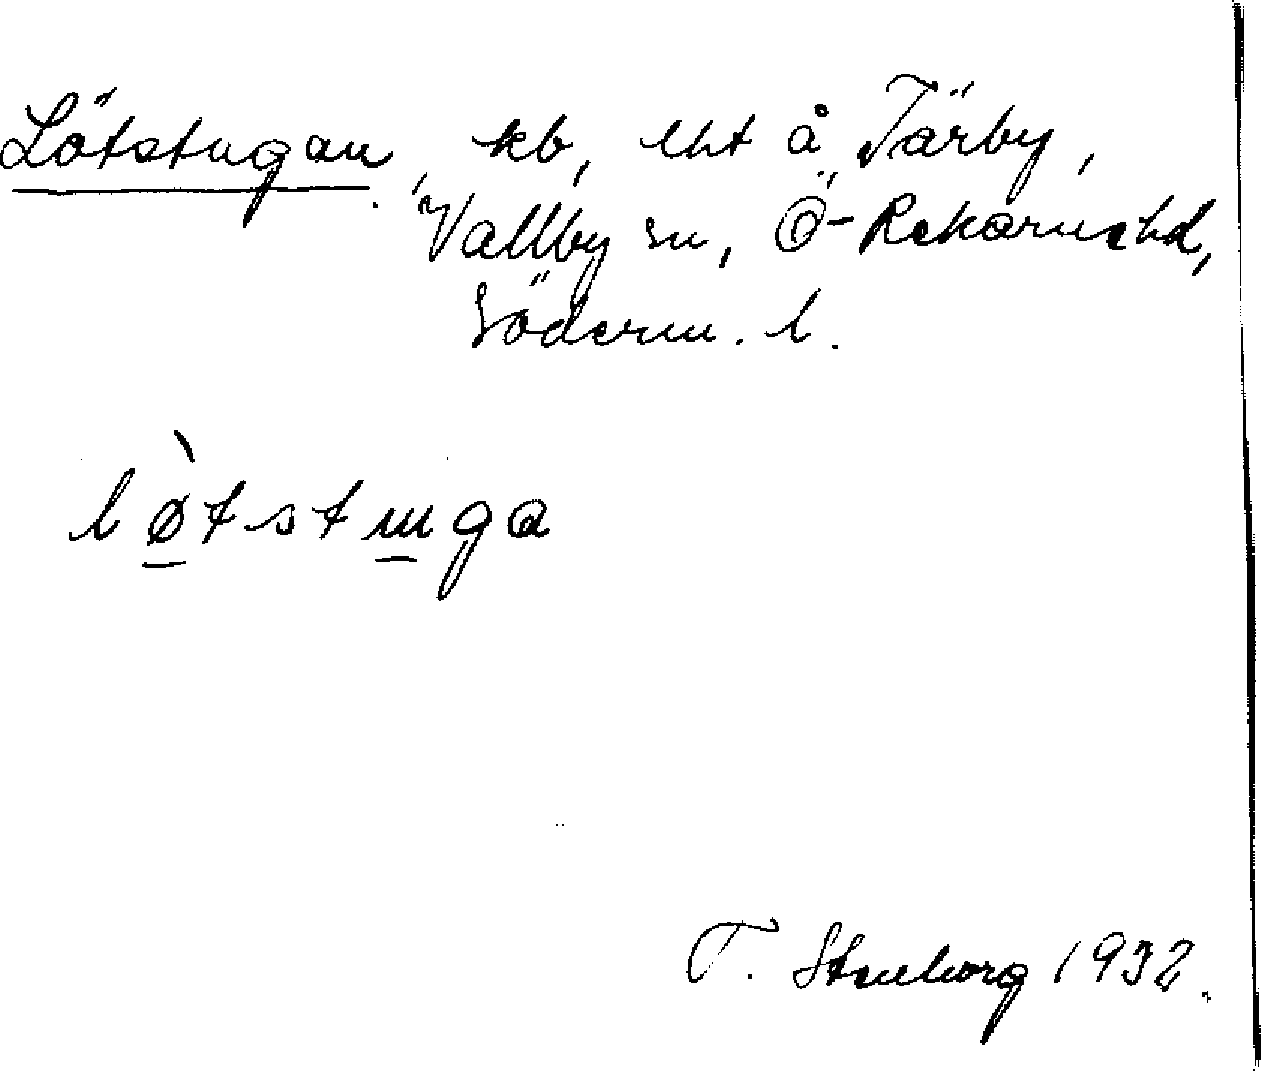 Lötstugan, kb, lht å Tärby,
Vallby sn, Ö-Rekarnehd,
Söderm. l.
lø̀tstuga
T. Stenborg 1932.